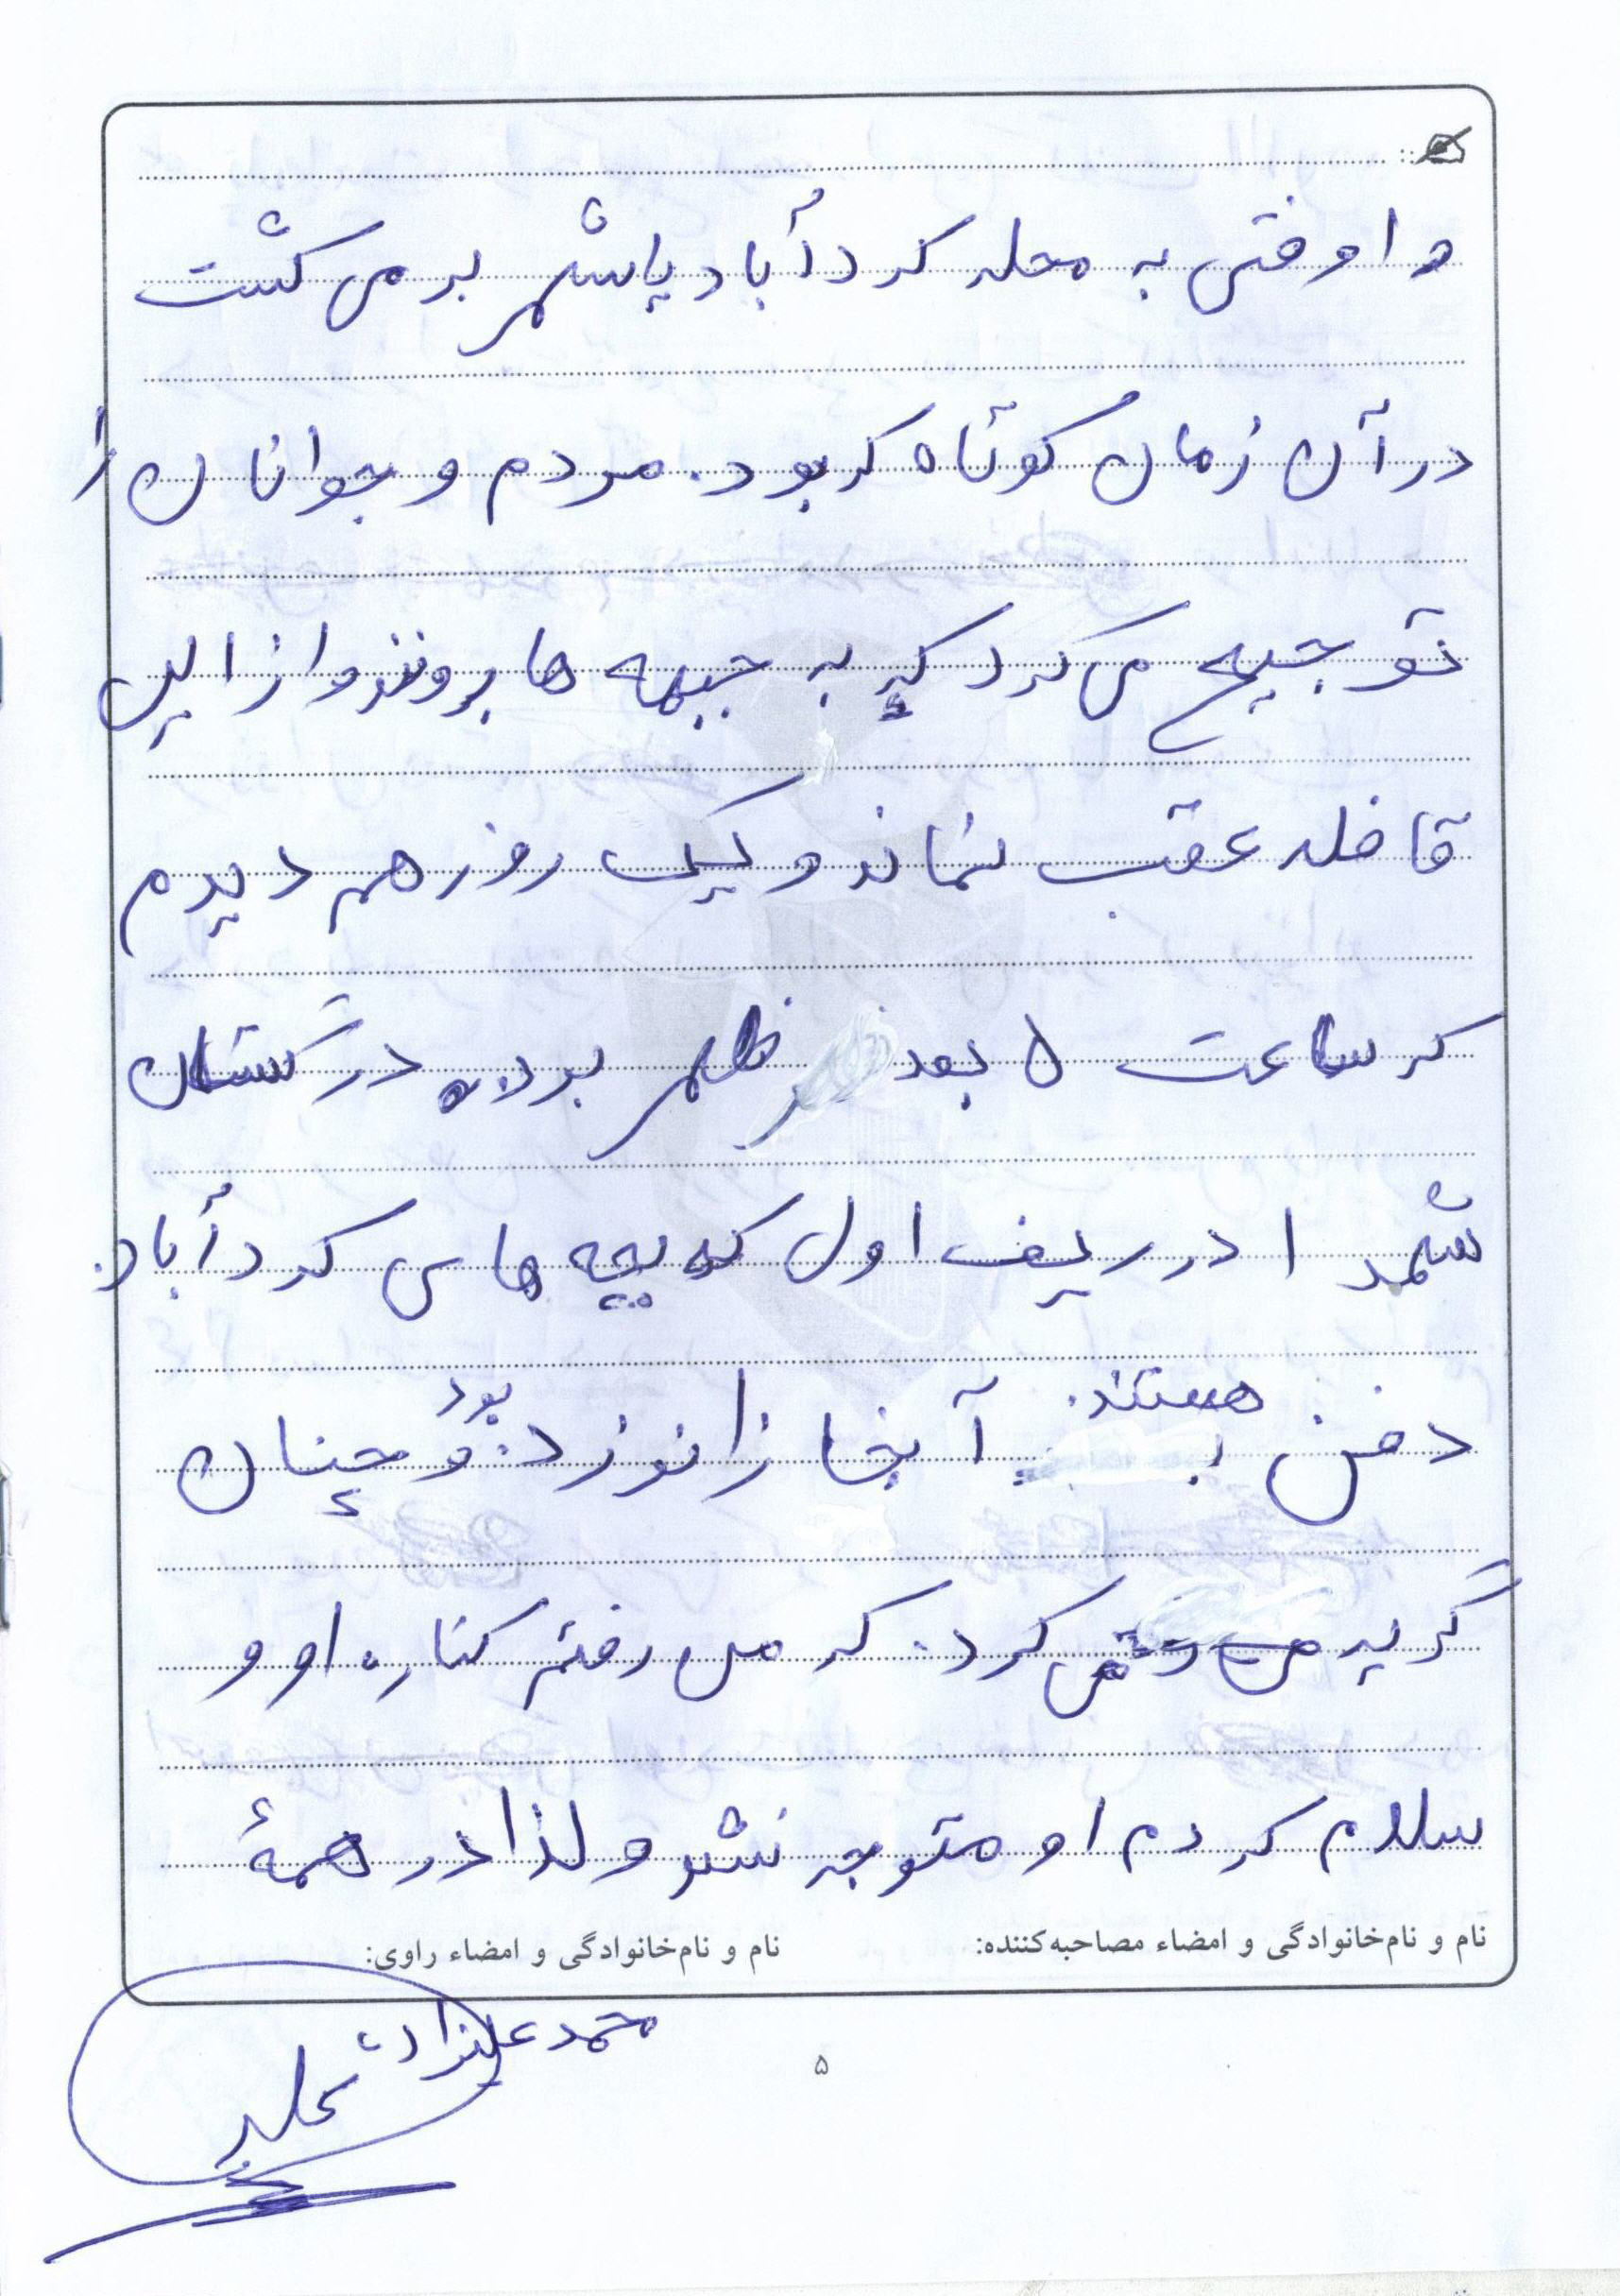 و او وقتی به محله کردآباد یا شهر بر می گشت
در آن زمان کوتاه که بود. مردم و جوانان را
توجیح می کرد که به جبهه ها بروند و از این
قافله عقب نماند و یک روز هم دیدم
که ساعت ۵ بعد ظهر بود. در گلستان
شهدا در ریف اول که بچه های کردآباد.
دفن هستند. آنجا زانو زد. بود و چنان
گریه می کرد. که من رفتم کناره او و
سلام کردم او متوجه نشد و لذا در همهٔ
نام و نام‌خانوادگی و امضاء مصاحبه‌کننده:
نام و نام‌خانوادگی و امضاء راوی:
محمد علیزاده
۵